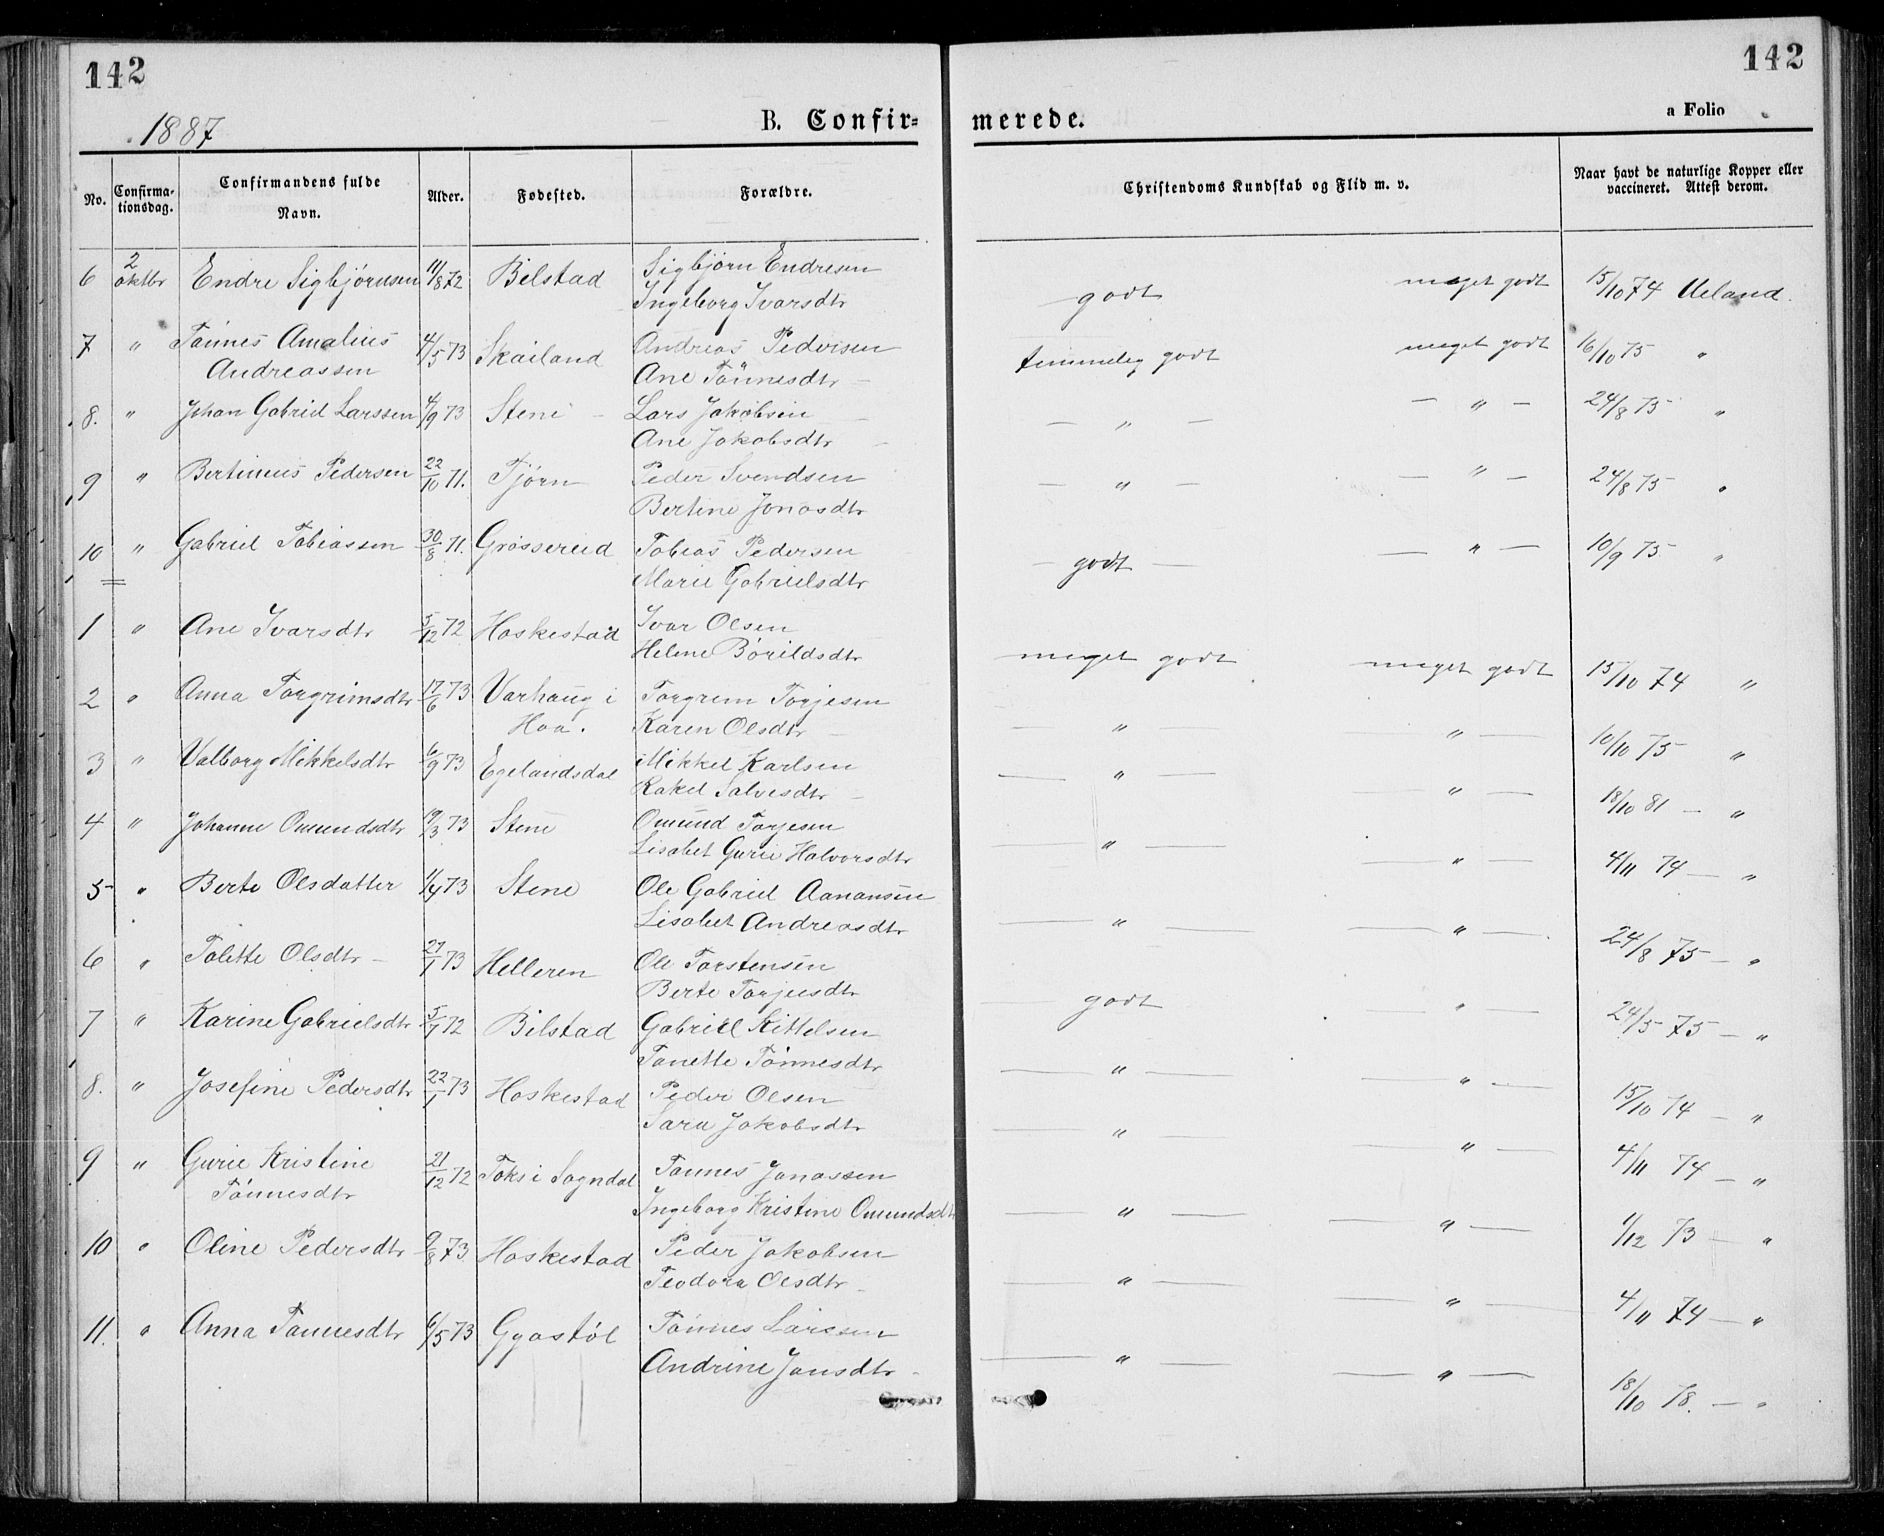 142
142
1887
B. Confir-
merede.
a Folio
No.
Confirma-
tionsdag.
Confirmandens fulde
Navn.
Alder.
Fødested.
Forældre.
Christendoms Kundskab og Flid m. v.
Naar havt de naturlige Kopper eller
vaccineret. Attest derom.
6 2 oktbr Endre Sigbjørnsen 11/8 72 Bilstad Sigbjørn Endresen godt meget godt 15/10 74 Ueland.
Ingeborg Ivarsdtr
7 " Tønnes Amalius 4/5 73 Skailand Andreas Pedersen temmelig godt meget godt 16/10 75 "
Andreassen Ane Tønnesdtr —
8. " Johan Gabriel Larssen 4/9 73 Stene – Lars Jakobsen — " — — " — 24/8 75 "
Ane Jakobsdtr —
9 " Bertinius Pedersen 22/10 71. Tjørn Peder Svendsen — " — — " — 24/8 75 "
Bertine Jonasdtr
10 " Gabriel Tobiassen 30/8 71. Grøssereid Tobias Pedersen — godt — — " — 10/9 75 "
Marie Gabrielsdtr
1 " Ane Ivarsdtr 5/12 72 Haskestad Ivar Olsen meget godt meget godt 15/10 74 "
Helene Børildsdtr
2 " Anna Torgrimsdtr 17/6 73 Varhaug i Torgrim Torjesen — " — " — 10/10 75 "
Haa. Karen Olsdtr —
3 " Valborg Mikkelsdtr 6/9 73 Egelandsdal Mikkel Karlsen — " — — " — 18/10 81 — "
Rakel Salvesdtr —
4 " Johanne Omundsdtr 19/3 73 Stene Omund Torjesen — " — — " — 4/11 74 — "
Lisabet Gurie Halvorsdtr
5 " Berte Olsdatter 1/4 73 Stene Ole Gabriel Aanansen — " — — " — 24/8 75 — "
Lisabet Andreasdtr
6 " Tolette Olsdtr – 27/1 73 Helleren Ole Torstensen — godt — " — 24/5 75 — "
Berte Torjusdtr
7 " Karine Gabrielsdtr 5/7 72 Bilstad Gabriel Kittelsen — " — — " — 15/10 74 — "
Tanette Tønnesdtr
8. " Josefine Pedersdtr 22/1 73 Haskestad Peder Olsen — " — — " — 4/11 74 — "
Sara Jakobsdtr
9 " Gurie Kristine 21/12 72 Toks i Sogndal Tønnes Jonassen — " — — " — 1/12 73 — "
Tønnesdtr Ingeborg Kristine Omundsdtr
10 " Oline Pedersdtr 9/8 73 Haskestad Peder Jakobsen — " — — " — 4/11 74 — "
Teodora Olsdtr –
11. " Anna Tønnesdtr 6/5 73 Gyastøl Tønnes Larssen — " — — " — 18/10 78. — "
Andrine Jansdtr –